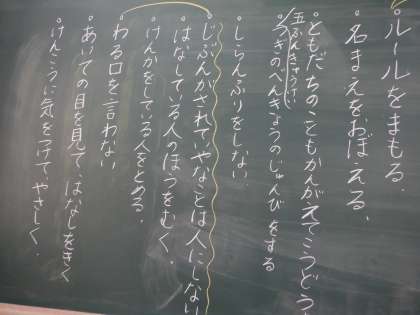 ・ルールをまもる。
・名まえをおぼえる。
・ともだちのこともかんがえてこうどう
五ぶんきゅうけい
・つぎのべんきょうのじゅんびをする
・しらんぷりをしない
・じぶんがされていやなことは人にしない
・はなしている人のほうをむく。
・けんかをしている人をとめる。
・わる口を言わない
・あいての目を見て、はなしをきく
・けんこうに気をつけて、やさしく。